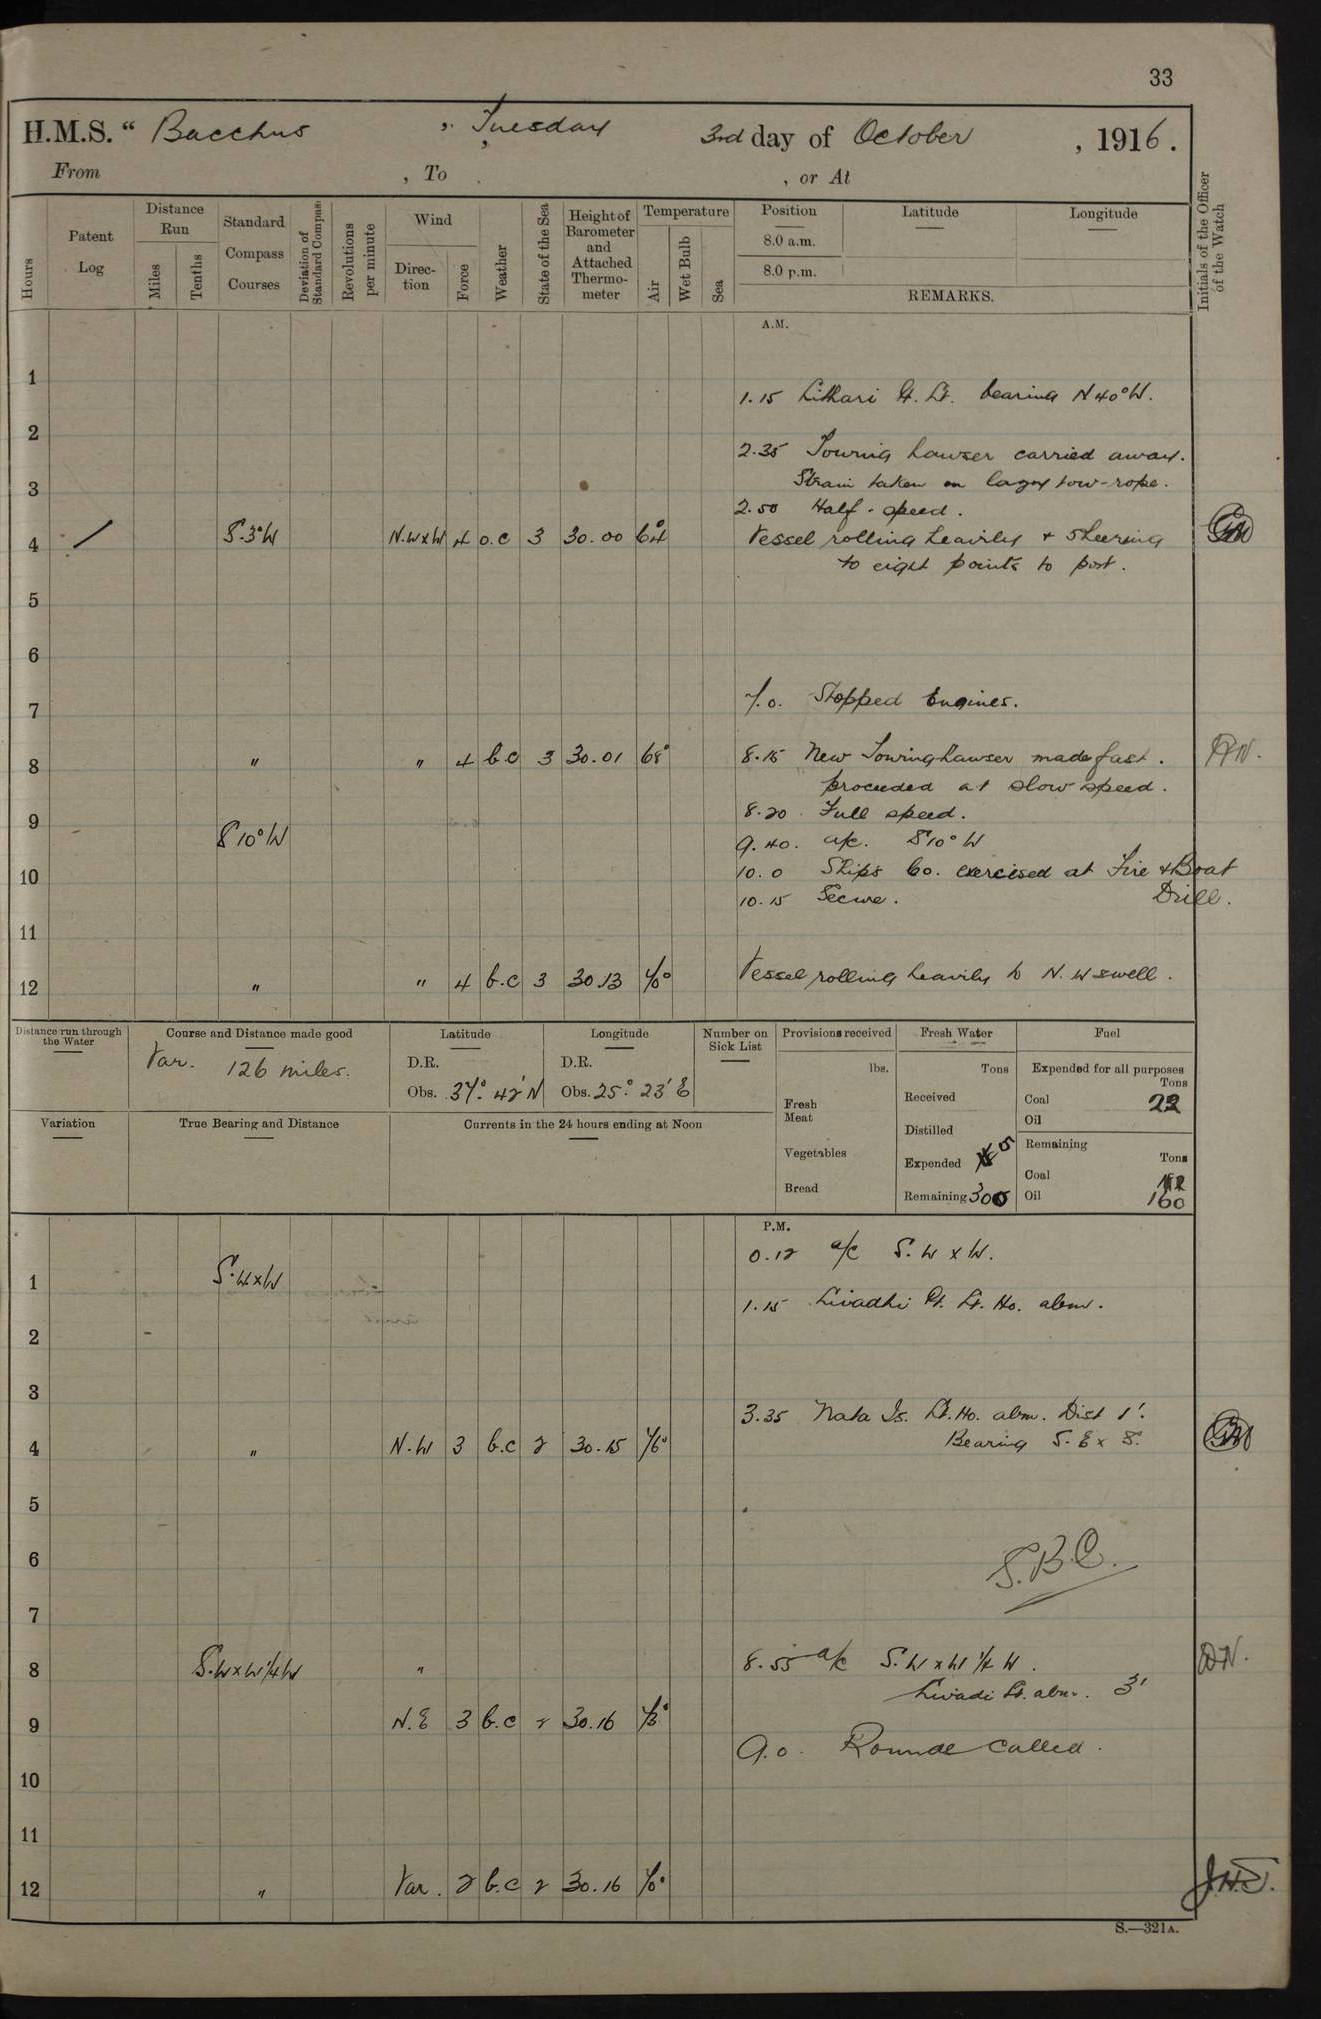 33
H.M.S. " Bacchus " , Tuesday 3rd day of October , 1916 .
From , To , or At
Hours
Patent Log
Distance Run
Miles
Tenths
Standard Compass Courses
Deviation of Standard Compass
Revolutions per minute
Wind
Direc-tion
Force
Weather
State of the Sea
Height of Barometer and Attached Thermo-meter
Temperature
Air
Wet Bulb
Sea
Position
8.0 a.m.
8.0 p.m.
Latitude
Longitude
REMARKS.
Initials of the Officer of the Watch
A.M.
1
1.15 Lithari Pt. Lt. bearing N 40° W.
2
2.35 Towing hawser carried away.
Strain taken on tow-rope.
3
2.50 Half-speed.
4 / S.3°W N.W x W 4 o.c 3 30.00 64° Vessel rolling heavily & sheering
to eight points to port.
5
6
7
7.0. Stopped Engines.
8 " " 4 b.c 3 30.01 68° 8.15 New Towing hawser made fast.
proceeded at slow speed.
8.20 Full speed.
9
S 10° W 9.40. a/c. S 10° W
10
10.0 Ship's Co. exercised at Fire & Boat
Drill.
10.15 Secure.
11
12 " " 4 b.c 3 30.13 70 Vessel rolling heavily to N.W swell.
Distance run through the Water
Course and Distance made good
Var. 126 miles.
Latitude
D.R.
Obs. 37° 42' N
Longitude
D.R.
Obs. 25° 23' E
Number on Sick List
Provisions received
lbs.
Fresh Meat
Vegetables
Bread
Fresh Water
Tons
Received
Distilled
Expended 5
Remaining 300
Fuel
Expended for all purposes
Tons
Coal 22
Oil
Remaining
Tons
Coal
Oil 160
Variation
True Bearing and Distance
Currents in the 24 hours ending at Noon
P.M.
0.12 a/c S.W x W.
1 S.W x W
1.15 Livadhi Pt. Lt. Ho. abm.
2
3
3.35 Nata Is. Lt. Ho. abm. Dist 1'.
4 " N.W 3 b.c 2 30.15 76° Bearing S.E x S.
5
6
S.B.C.
7
8 S.W x W 1/4 W " 8.55 a/c S.W x W 1/4 W.
Livadi Lt. abm. 3'
9 N.E 3 b.c 2 30.16 73°
9.0. Rounds called.
10
11
12 " Var. 2 b.c 2 30.16 70° J.H.S.
S.—321A.